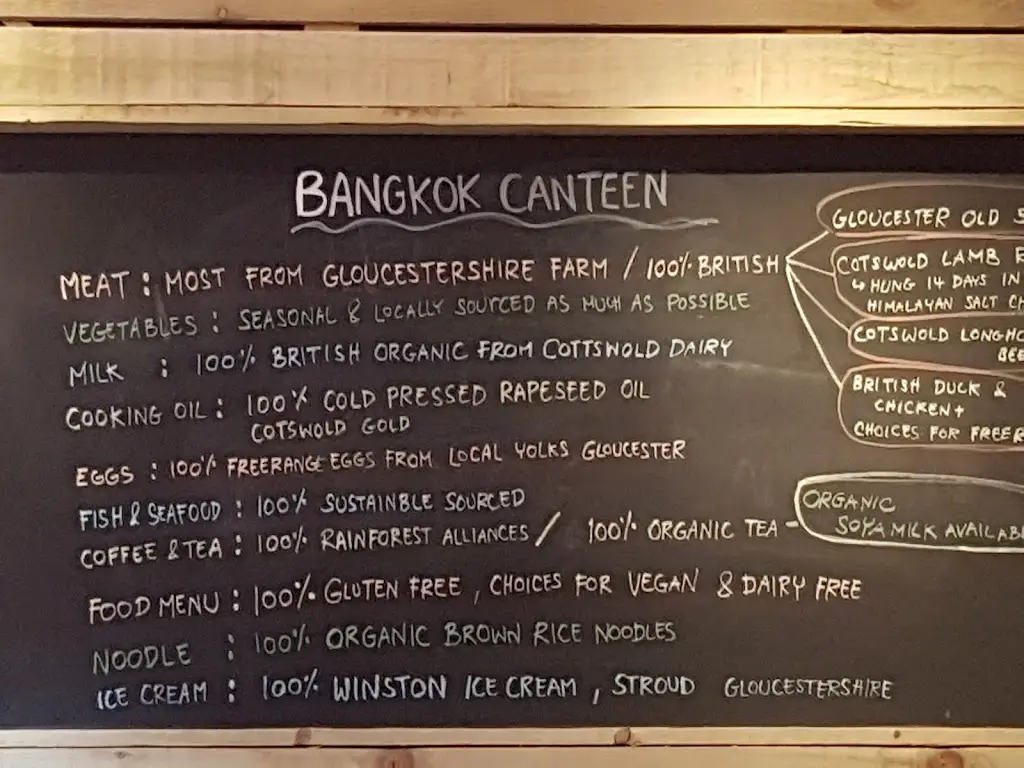 BANGKOK CANTEEN
MEAT : MOST FROM GLOUCESTERSHIRE FARM / 100% BRITISH
VEGETABLES : SEASONAL & LOCALLY SOURCED AS MUCH AS POSSIBLE
MILK : 100% BRITISH ORGANIC FROM COTTSWOLD DAIRY
COOKING OIL : 100% COLD PRESSED RAPESEED OIL
COTSWOLD GOLD
EGGS : 100% FREERANGE EGGS FROM LOCAL YOLKS GLOUCESTER
FISH & SEAFOOD : 100% SUSTAINBLE SOURCED
COFFEE & TEA : 100% RAINFOREST ALLIANCES / 100% ORGANIC TEA -
FOOD MENU : 100% GLUTEN FREE , CHOICES FOR VEGAN & DAIRY FREE
NOODLE : 100% ORGANIC BROWN RICE NOODLES
ICE CREAM : 100% WINSTON ICE CREAM , STROUD GLOUCESTERSHIRE
GLOUCESTER OLD
COTSWOLD LAMB
↳ HUNG 14 DAYS IN
HIMALAYAN SALT
COTSWOLD
BRITISH DUCK &
CHICKEN +
CHOICES FOR
ORGANIC
SOYA MILK